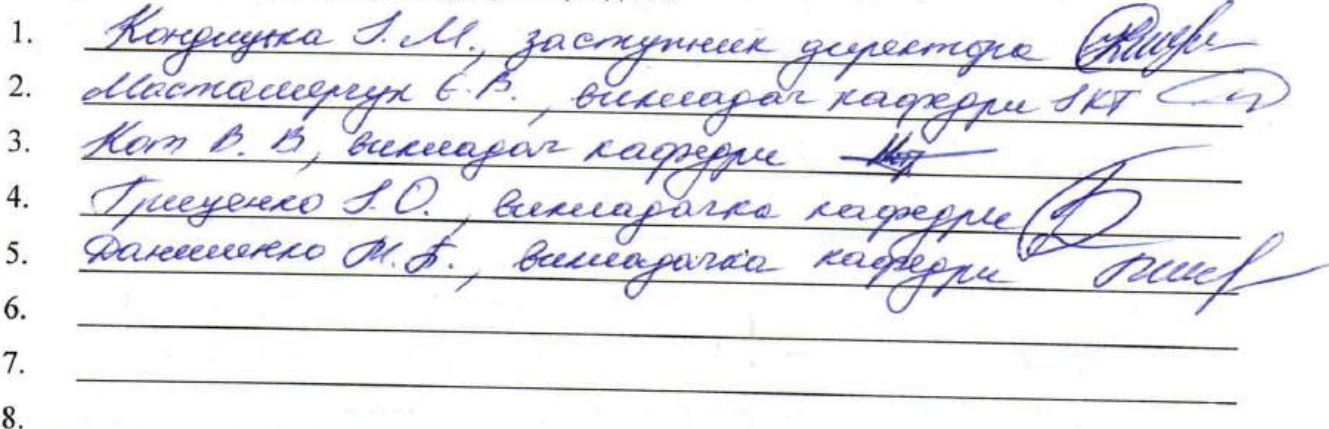 1. Кондицька І. М., заступник директора
2. Мастамерчук Є. В., викладач кафедри ІКТ
3. Кот В. В, викладач кафедри
4. Гриценко І. О., викладачка кафедри
5. Даниленко М. Б., викладачка кафедри
6.
7.
8.